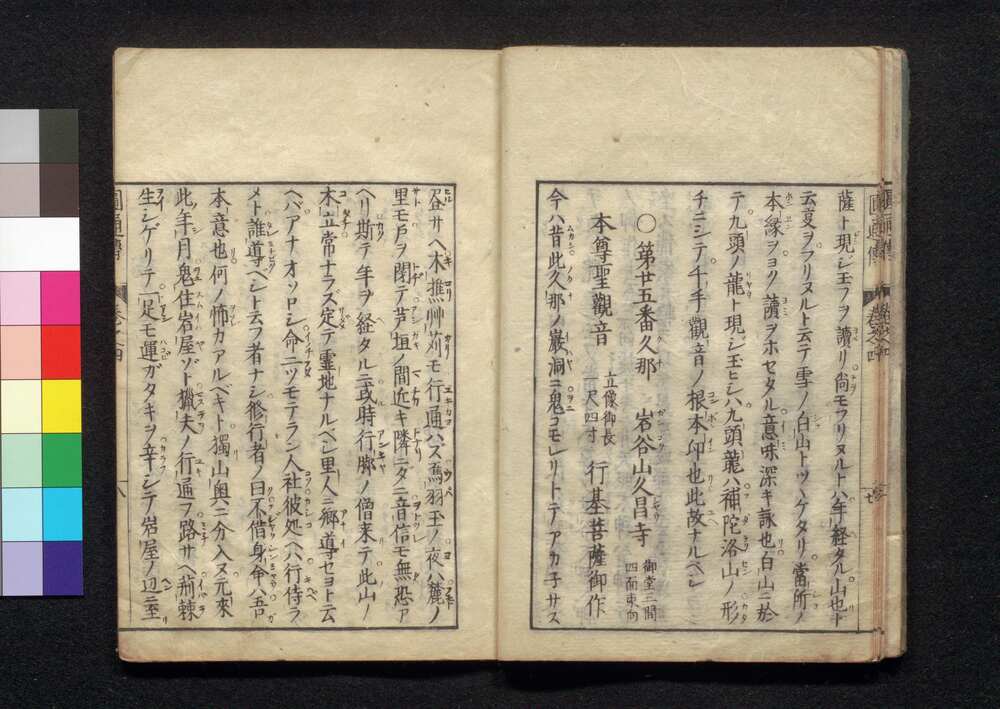 薩ト現シ玉フヲ讀リ尚モフリヌルトハ年経タル山也ト
云変ヲフリヌルト云テ雪ノ白山トツヽケタリ當所ノ
本縁ヲヨク讀ヲホセタル意味深キ詠也白山ニ於
テ九頭ノ龍ト現シ玉ヒシハ九頭龍ハ補陀洛山ノ形
チニシテ千手觀音ノ根本印也此故ナルベシ
〇第廿五番久那 岩谷山久昌寺 御堂三間四面東向
本尊聖觀音 立像御長一尺四寸 行基菩薩御作
今ハ昔此久那ノ巌洞ニ鬼コモレリトテアカ子サス
昼サヘ木樵艸苅モ行通ハズ烏羽玉ノ夜ハ麓ノ
里モ戸ヲ閇テ芦垣ノ間近キ隣ダニ音信モ無恐ア
ヘリ斯テ年ヲ経タルニ或時行脚ノ僧来テ此山ノ
木立常士ラズ定テ霊地ナルベシ里人ニ郷導セヨト云
ヘバアナオソロシ命二ツモテラン人社彼処ヘハ行侍ラ
メト誰導ベシト云フ者ナシ修行者ノ曰不惜身命ハ吾
本意也何ノ怖カアルベキト獨山奥ニ分入ヌ元來
此年月鬼住岩屋ゾト猟夫ノ行通フ路サヘ荊棘
生シゲリテ一足モ運ガタキヲ辛シテ岩屋ノ辺ニ至
圓通傳 巻之四 八